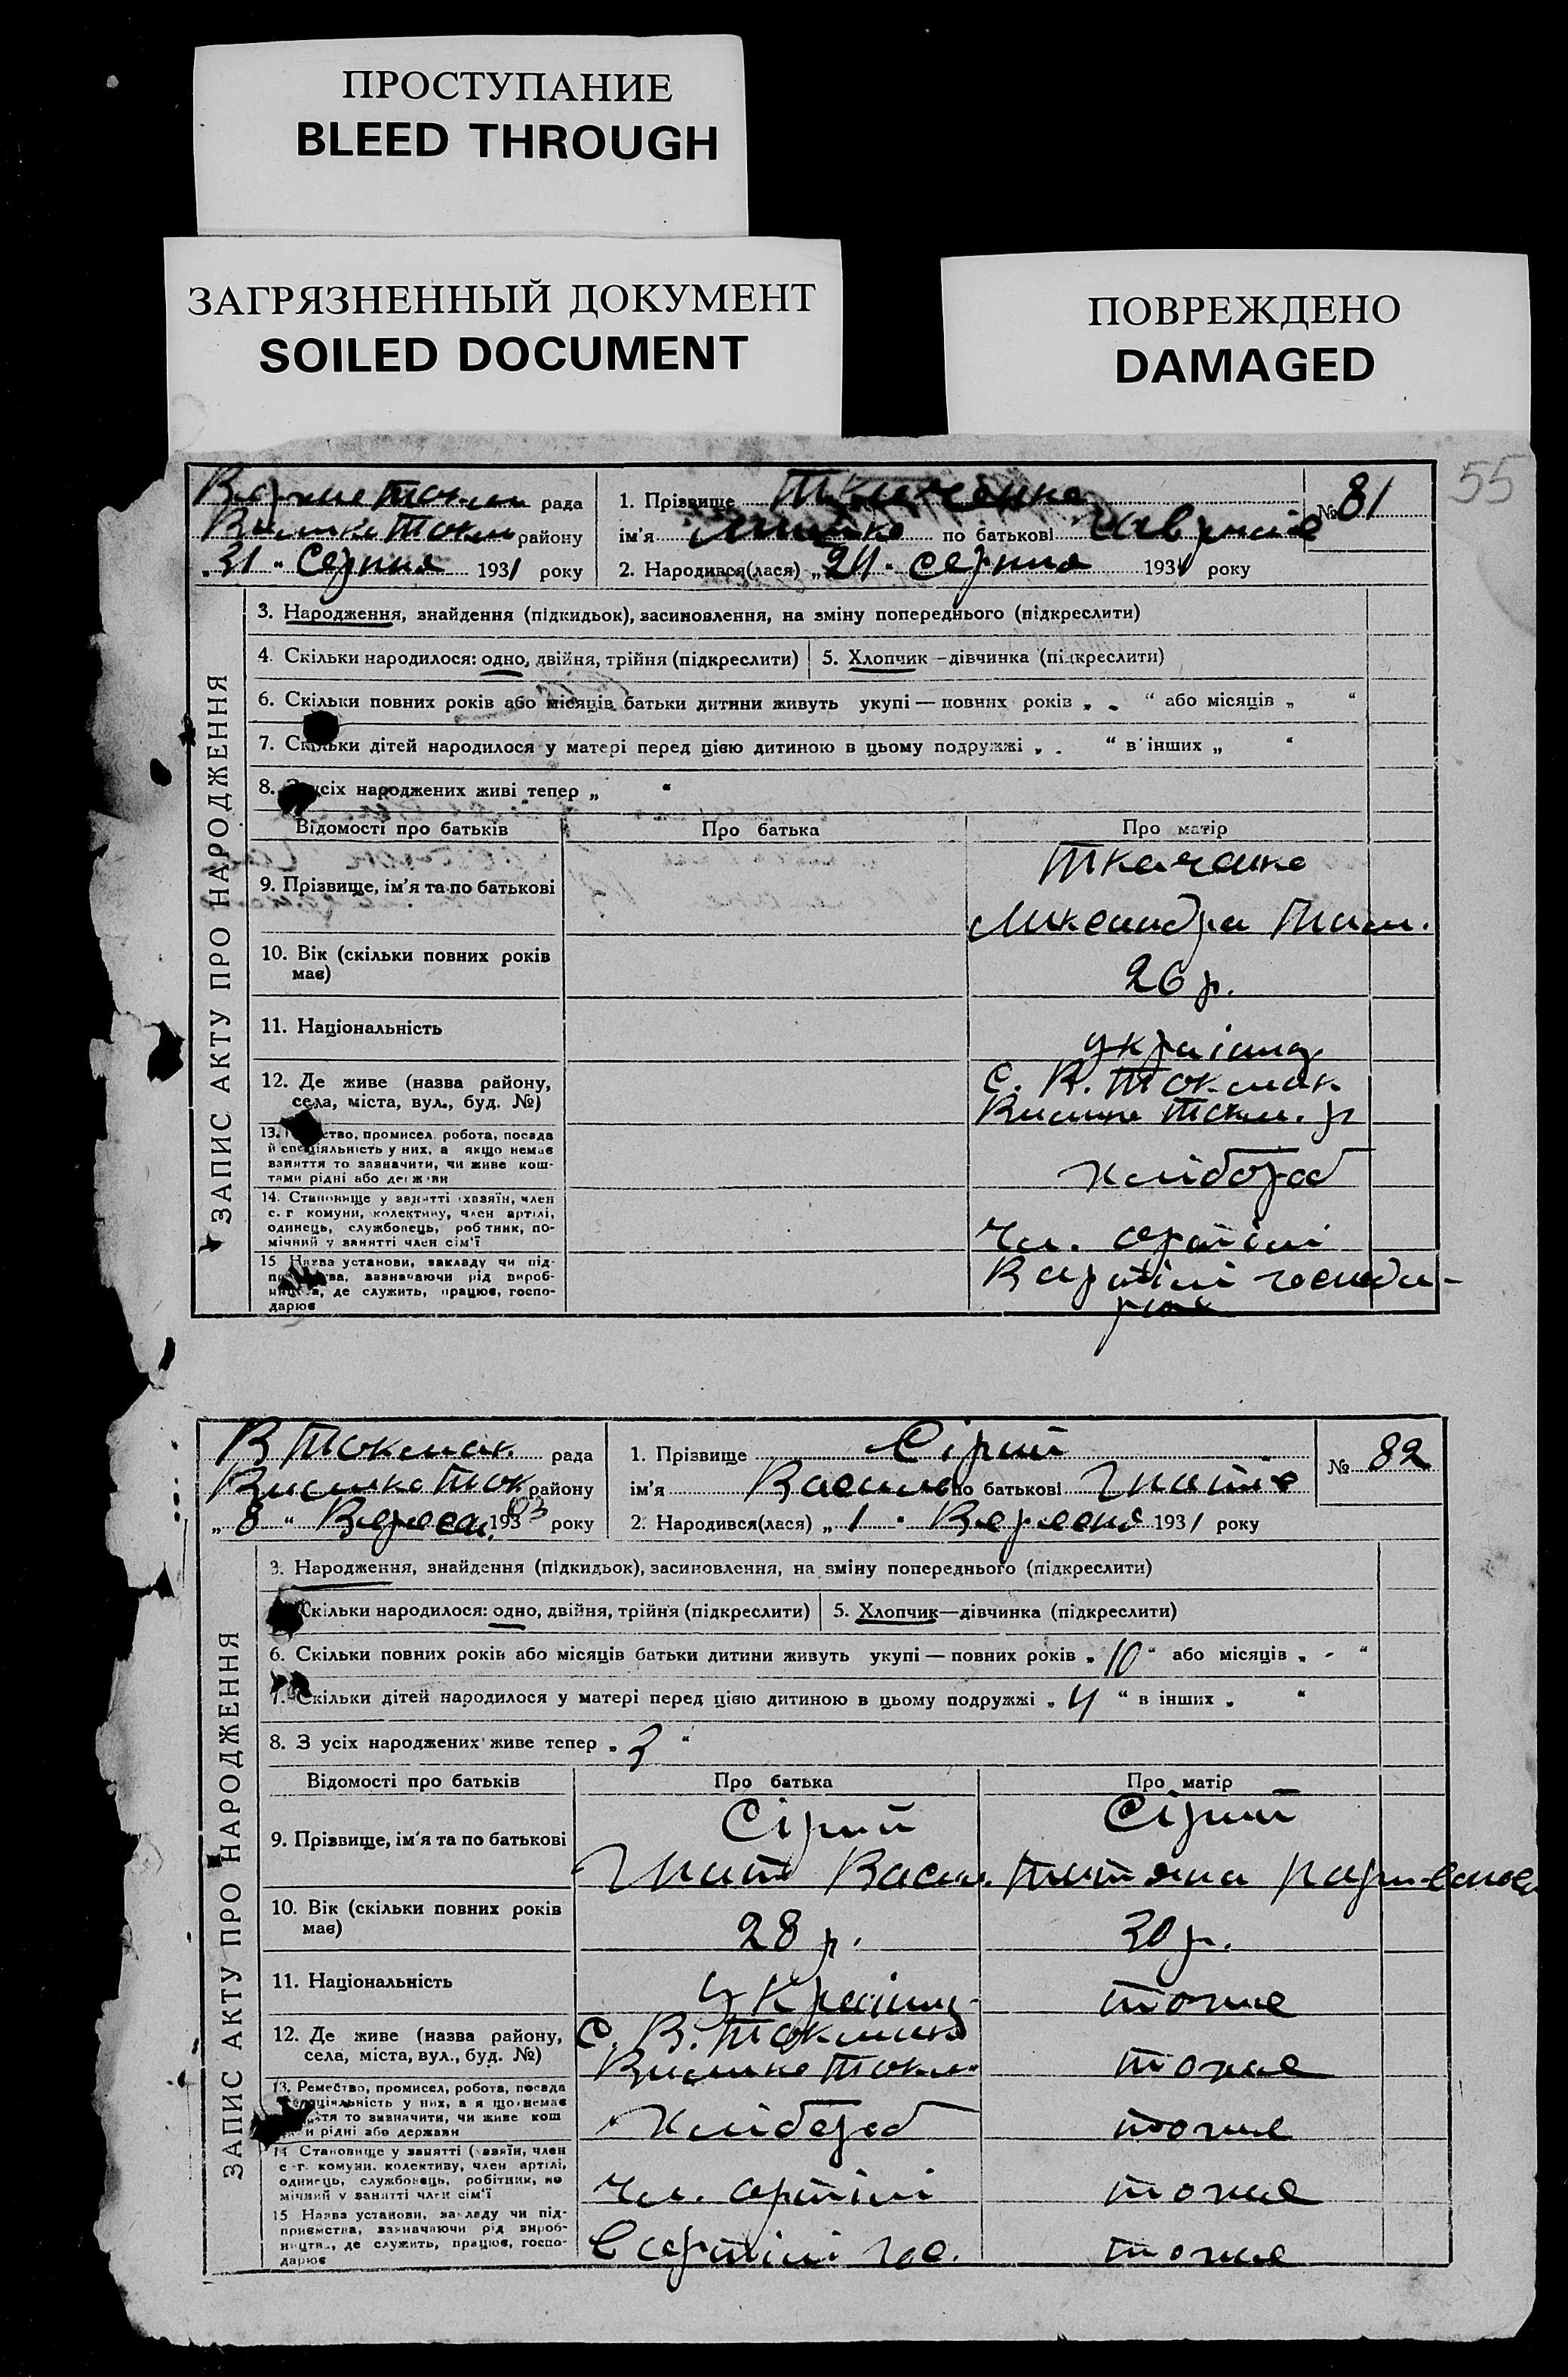 ПРОСТУПАНИЕ
BLEED THROUGH
ЗАГРЯЗНЕННЫЙ ДОКУМЕНТ
SOILED DOCUMENT
ПОВРЕЖДЕНО
DAMAGED
55
рада
району
„31“ Серпня 1931 року
1. Прізвище Ткаченко
ім'я по батькові
№ 81
2. Народився(лася) „ “ серпня 1931 року
ЗАПИС АКТУ ПРО НАРОДЖЕННЯ
3. Народження, знайдення (підкидьок), засиновлення, на зміну попереднього (підкреслити)
4. Скільки народилося: одно, двійня, трійня (підкреслити)
5. Хлопчик—дівчинка (підкреслити)
6. Скільки повних років або місяців батьки дитини живуть укупі — повних років „ - “ або місяців „ “
7. Скільки дітей народилося у матері перед цією дитиною в цьому подружжі „ - “ в інших „ “
8. З усіх народжених живі тепер „ “
Відомості про батьків
Про батька
Про матір
9. Прізвище, ім'я та по батькові
Ткаченко
10. Вік (скільки повних років має)
26 р.
11. Національність
україна
12. Де живе (назва району,
села, міста, вул., буд. №)
С. В. Токмак
13. Ремество, промисел, робота, посада
й спеціяльність у них, а якщо немає
заняття то зазначити, чи живе кош-
тами рідні або держави
Хлібороб
14. Становище у занятті (хазяїн, член
с.-г. комуни, колективу, член артілі,
одинець, службовець, робітник, по-
мічний у занятті член сім'ї
Чл. артілі
15 Назва установи, закладу чи під-
приємства, зазначаючи рід вироб-
ництва, де служить, працює, госпо-
дарює
В артілі
В Токмак рада
району
„8“ Вересн. 193 року
1. Прізвище Сірий
ім'я Василь по батькові Гнатів
№ 82
2. Народився(лася) „1“ Вересня 1931 року
ЗАПИС АКТУ ПРО НАРОДЖЕННЯ
3. Народження, знайдення (підкидьок), засиновлення, на зміну попереднього (підкреслити)
4. Скільки народилося: одно, двійня, трійня (підкреслити)
5. Хлопчик—дівчинка (підкреслити)
6. Скільки повних років або місяців батьки дитини живуть укупі — повних років „10“ або місяців „ - “
7. Скільки дітей народилося у матері перед цією дитиною в цьому подружжі „4“ в інших „ “
8. З усіх народжених живе тепер „3“
Відомості про батьків
Про батька
Про матір
9. Прізвище, ім'я та по батькові
Сірий
Гнат Васил.
Сірий
Титяна
10. Вік (скільки повних років має)
28 р.
30 р.
11. Національність
Україна
тоже
12. Де живе (назва району,
села, міста, вул., буд. №)
С. В. Токмак
тоже
13. Ремество, промисел, робота, посада
й спеціяльність у них, а якщо немає
заняття то зазначити, чи живе кош
тами рідні або держави
Хлібороб
тоже
14 Становище у занятті (хазяїн, член
с-г. комуни, колективу, член артілі,
одинець, службовець, робітник, по
мічний у занятті член сім'ї
Чл. артілі
тоже
15 Назва установи, закладу чи під-
приємства, зазначаючи рід вироб-
ництва, де служить, працює, госпо-
дарює
В артілі гос.
тоже